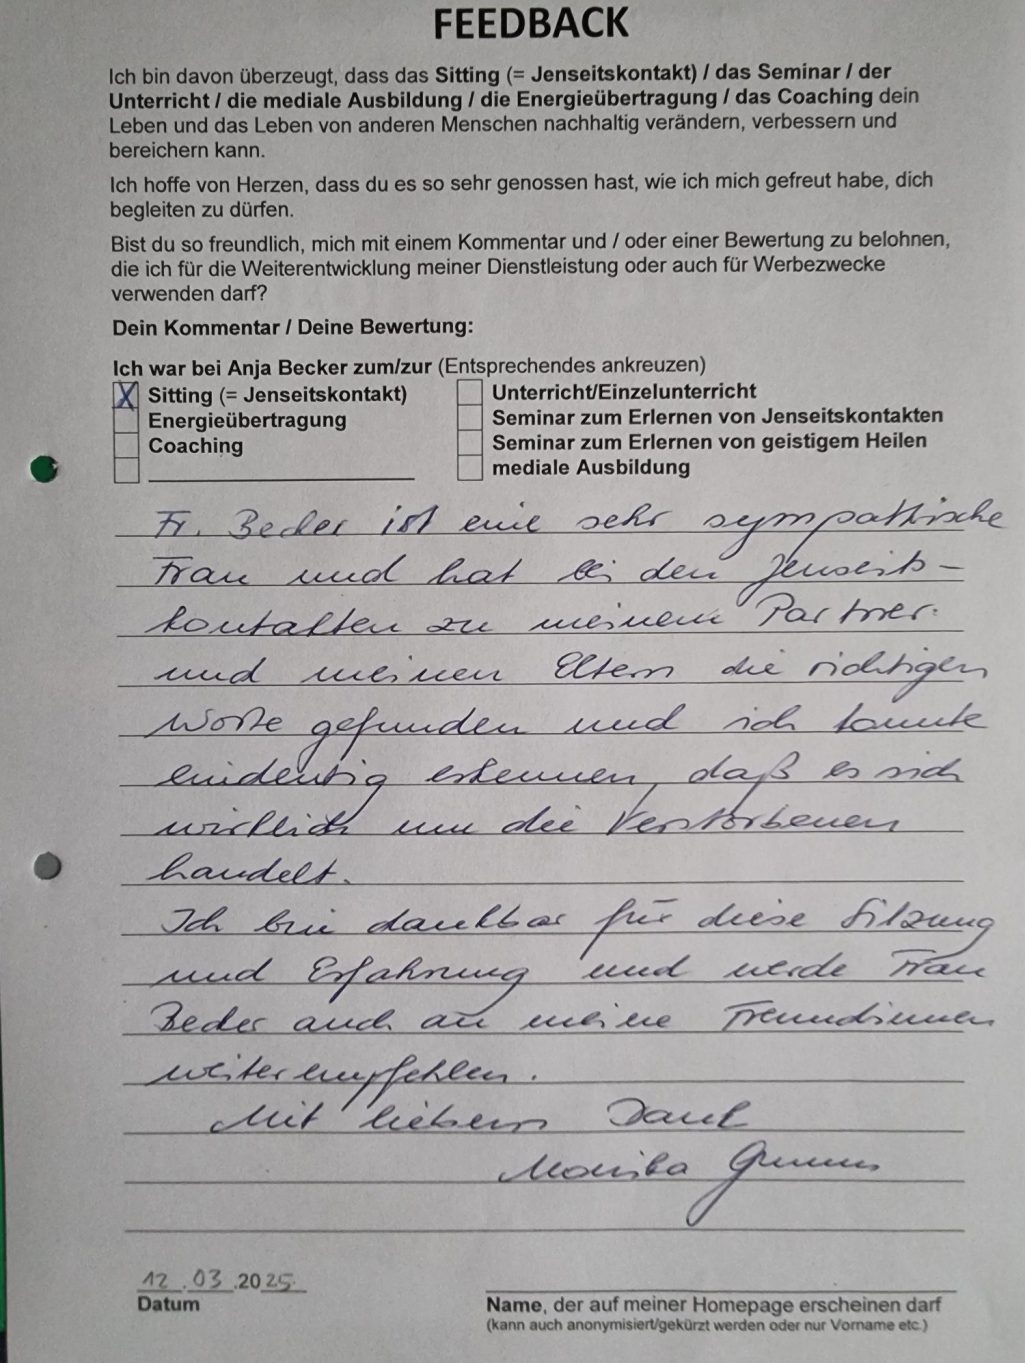 FEEDBACK
Ich bin davon überzeugt, dass das Sitting (= Jenseitskontakt) / das Seminar / der
Unterricht / die mediale Ausbildung / die Energieübertragung / das Coaching dein
Leben und das Leben von anderen Menschen nachhaltig verändern, verbessern und
bereichern kann.
Ich hoffe von Herzen, dass du es so sehr genossen hast, wie ich mich gefreut habe, dich
begleiten zu dürfen.
Bist du so freundlich, mich mit einem Kommentar und / oder einer Bewertung zu belohnen,
die ich für die Weiterentwicklung meiner Dienstleistung oder auch für Werbezwecke
verwenden darf?
Dein Kommentar / Deine Bewertung:
Ich war bei Anja Becker zum/zur (Entsprechendes ankreuzen)
X Sitting (= Jenseitskontakt)
Energieübertragung
Coaching
Unterricht/Einzelunterricht
Seminar zum Erlernen von Jenseitskontakten
Seminar zum Erlernen von geistigem Heilen
mediale Ausbildung
Fr. Becker ist eine sehr sympathische
Frau und hat bei den Jenseits-
kontakten zu meinem Partner
und meinen Eltern die richtigen
Worte gefunden und ich konnte
eindeutig erkennen, daß es sich
wirklich um die Verstorbenen
handelt.
Ich bin dankbar für diese Sitzung
und Erfahrung und werde Frau
Becker auch an meine Freundinnen
weiterempfehlen.
Mit liebem Dank
Monika
12.03.2025
Datum
Name, der auf meiner Homepage erscheinen darf
(kann auch anonymisiert/gekürzt werden oder nur Vorname etc.)